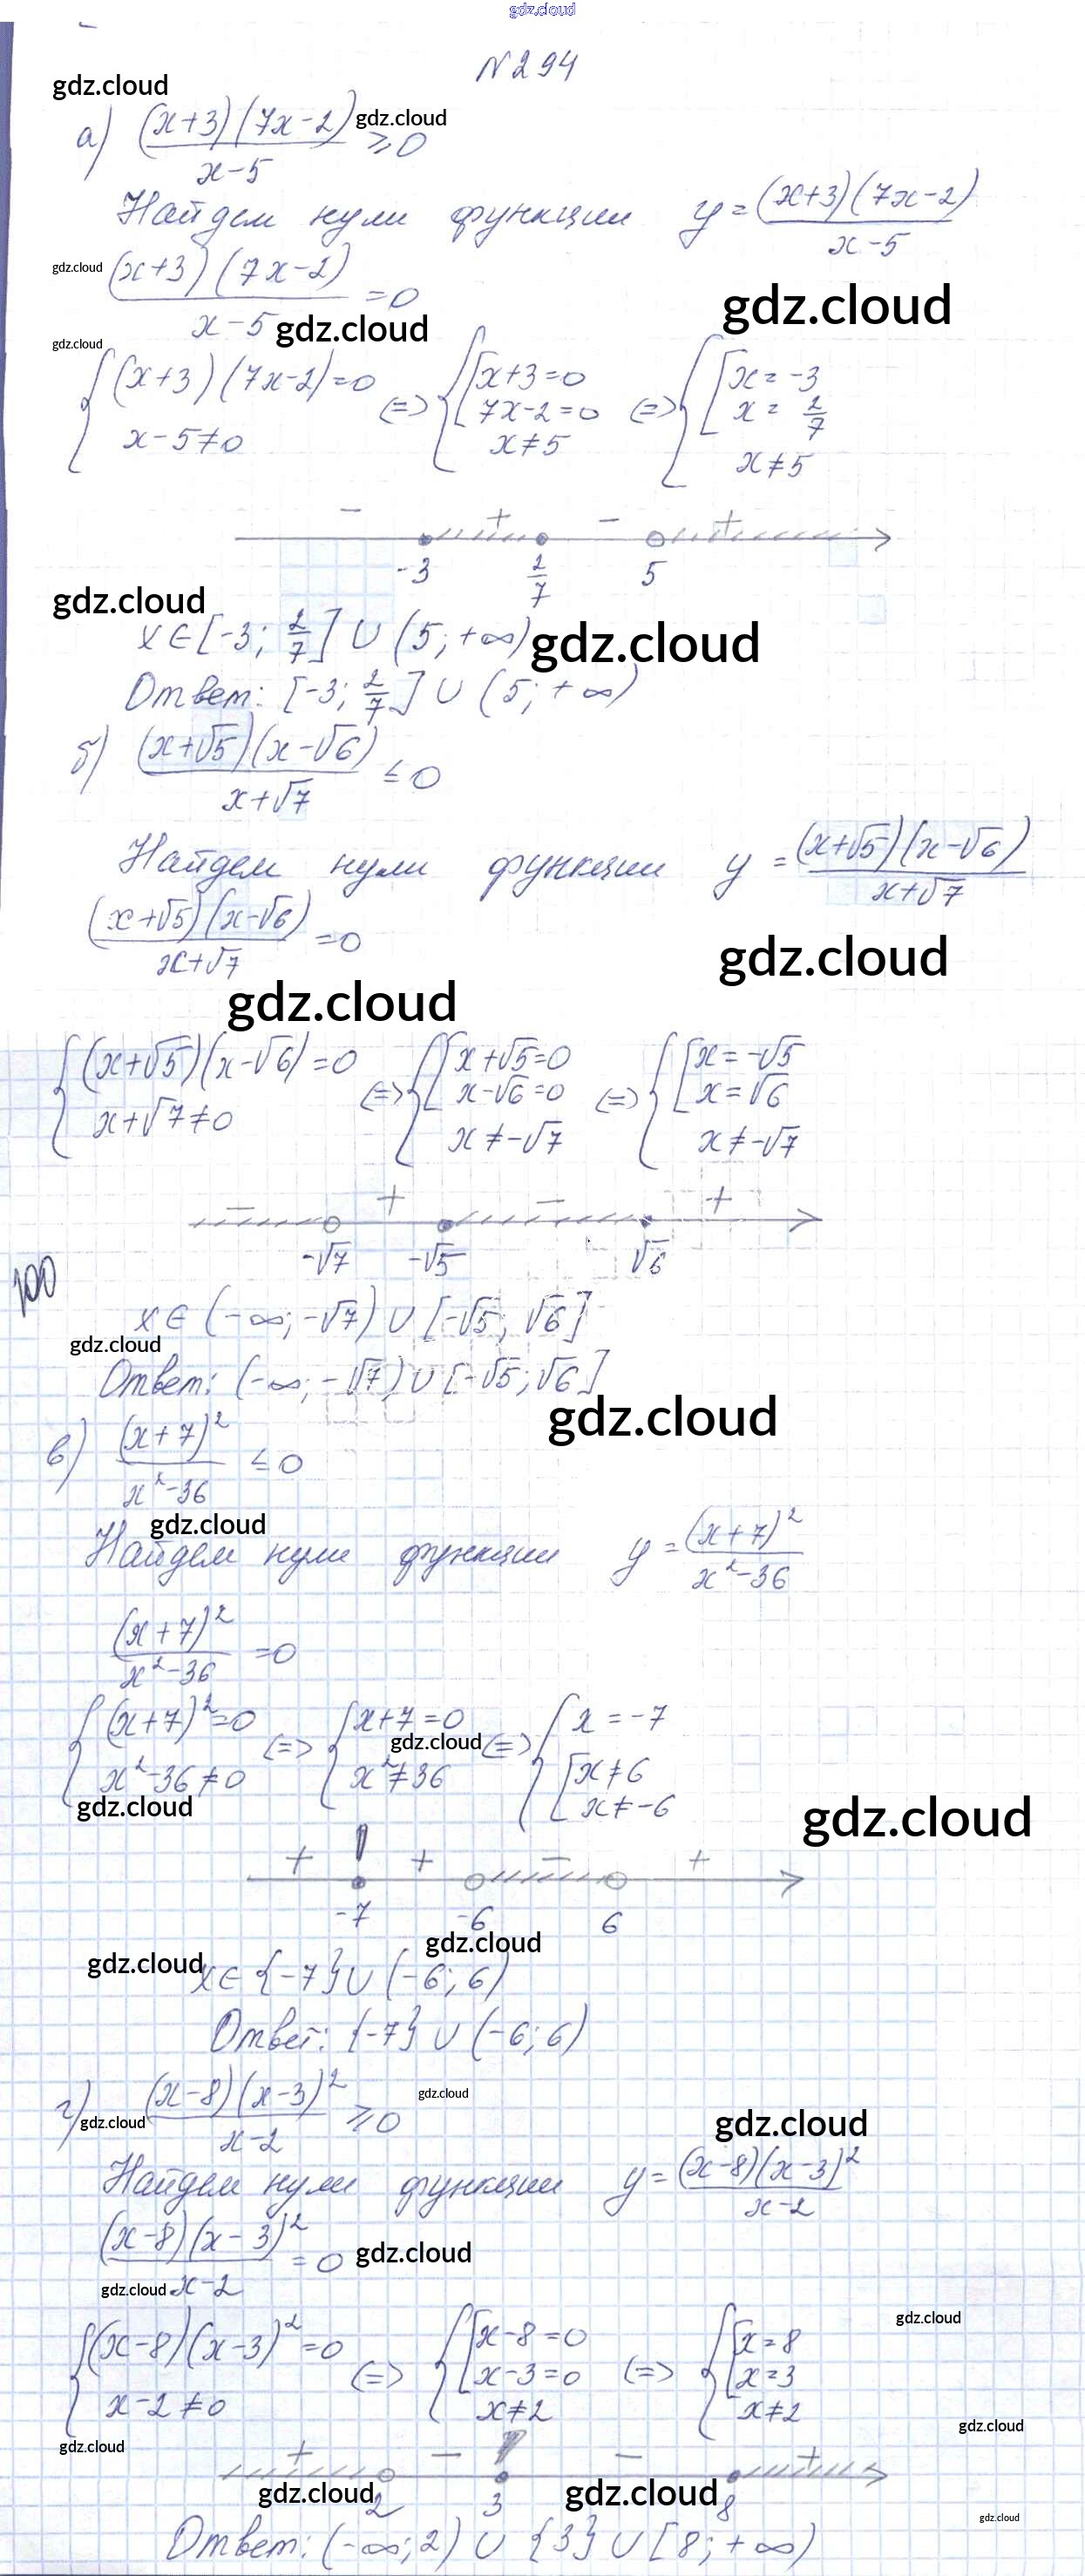 gdz.cloud
N 294
gdz.cloud
а) (x+3)(7x-2)/(x-5) ≥ 0 gdz.cloud
Найдем нули функции y = (x+3)(7x-2)/(x-5)
gdz.cloud (x+3)(7x-2)/(x-5) = 0
gdz.cloud gdz.cloud
gdz.cloud
{ (x+3)(7x-2)=0 ; x-5≠0 <=> { [ x+3=0 ; 7x-2=0 ; x≠5 <=> { [ x=-3 ; x=2/7 ; x≠5
- + - +
-3 2/7 5
gdz.cloud
x∈[-3; 2/7] ∪ (5; +∞) gdz.cloud
Ответ: [-3; 2/7] ∪ (5; +∞)
б) (x+√5)(x-√6)/(x+√7) ≤ 0
Найдем нули функции y = (x+√5)(x-√6)/(x+√7)
(x+√5)(x-√6)/(x+√7) = 0
gdz.cloud
gdz.cloud
{ (x+√5)(x-√6)=0 ; x+√7≠0 <=> { [ x+√5=0 ; x-√6=0 ; x≠-√7 <=> { [ x=-√5 ; x=√6 ; x≠-√7
- + - +
-√7 -√5 √6
100
x∈(-∞; -√7) ∪ [-√5; √6]
gdz.cloud
Ответ: (-∞; -√7) ∪ [-√5; √6]
gdz.cloud
в) (x+7)²/(x²-36) ≤ 0
gdz.cloud
Найдем нули функции y = (x+7)²/(x²-36)
(x+7)²/(x²-36) = 0
{ (x+7)²=0 ; x²-36≠0 <=> { x+7=0 ; x²≠36 <=> { x=-7 ; [ x≠6 ; x≠-6
gdz.cloud
gdz.cloud gdz.cloud
+ + - +
-7 -6 6
gdz.cloud
gdz.cloud x∈{-7} ∪ (-6; 6)
Ответ: {-7} ∪ (-6; 6)
г) (x-8)(x-3)²/(x-2) ≥ 0 gdz.cloud
gdz.cloud gdz.cloud
Найдем нули функции y = (x-8)(x-3)²/(x-2)
(x-8)(x-3)²/(x-2) = 0 gdz.cloud
gdz.cloud
gdz.cloud
{ (x-8)(x-3)²=0 ; x-2≠0 <=> { [ x-8=0 ; x-3=0 ; x≠2 <=> { [ x=8 ; x=3 ; x≠2
gdz.cloud
gdz.cloud
+ - - +
gdz.cloud gdz.cloud
2 3 8
gdz.cloud
Ответ: (-∞; 2) ∪ {3} ∪ [8; +∞)